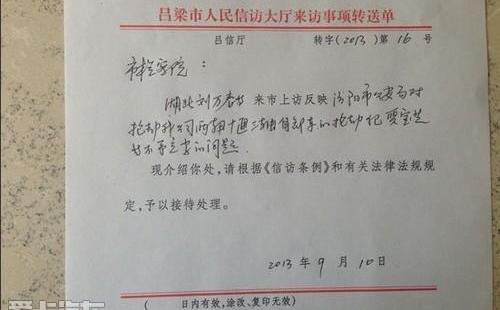 吕梁市人民信访大厅来访事项转送单
吕信厅 转字(2013)第16号
市检察院:
湖北刘万春等来市上访反映汾阳市公安局对
抢劫我公司两辆十通 自卸车的抢劫犯贾宝
不予立案的问题
现介绍你处,请根据《信访条例》和有关法律法规规
定,予以接待处理。
2013年9月10日
( 日内有效,涂改、复印无效)
爱卡汽车